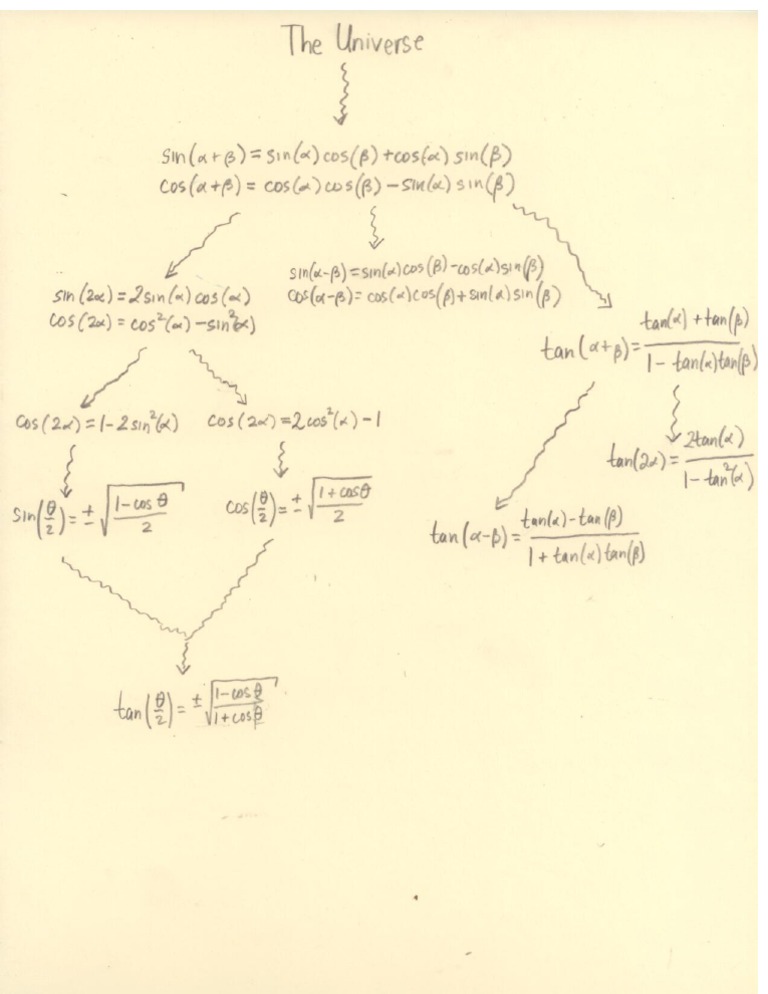 The Universe
sin(α+β)=sin(α)cos(β)+cos(α)sin(β)
cos(α+β)=cos(α)cos(β)-sin(α)sin(β)
sin(α-β)=sin(α)cos(β)-cos(α)sin(β)
cos(α-β)=cos(α)cos(β)+sin(α)sin(β)
sin(2α)=2sin(α)cos(α)
cos(2α)=cos²(α)-sin²(α)
tan(α+β)=(tan(α)+tan(β))/(1-tan(α)tan(β))
cos(2α)=1-2sin²(α)
cos(2α)=2cos²(α)-1
tan(2α)=2tan(α)/(1-tan²(α))
sin(θ/2)=±√((1-cosθ)/2)
cos(θ/2)=±√((1+cosθ)/2)
tan(α-β)=(tan(α)-tan(β))/(1+tan(α)tan(β))
tan(θ/2)=±√((1-cosθ)/(1+cosθ))